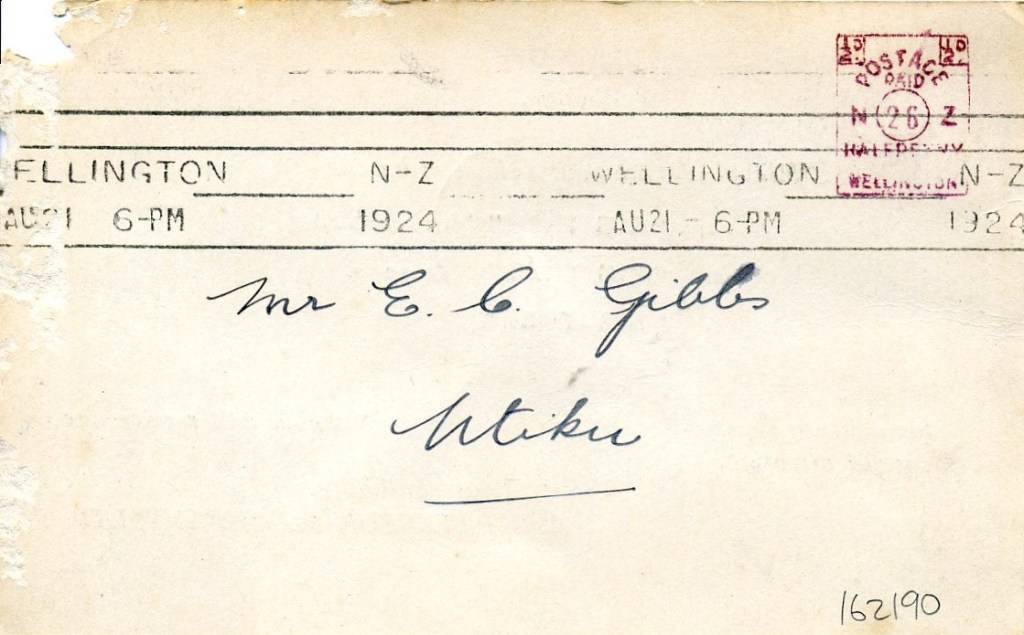 ½D ½D
POSTAGE
PAID
N 26 Z
HALFPENNY
WELLINGTON
ELLINGTON N-Z WELLINGTON N-Z
AU21 6-PM 1924 AU21 - 6-PM 1924
Mr E. C. Gibbs
Utiku
162190